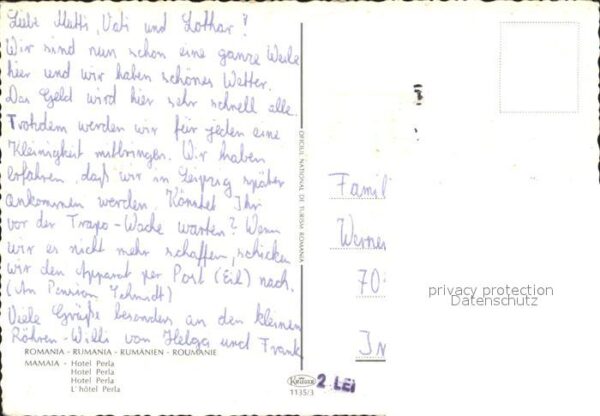 Liebe Mutti, Vati und Lothar!
Wir sind nun schon eine ganze Weile
hier und wir haben schönes Wetter.
Das Geld wird hier sehr schnell alle.
Trotzdem werden wir für jeden eine
Kleinigkeit mitbringen. Wir haben
erfahren, daß wir in Leipzig später
ankommen werden. Könntet Ihr
vor der Trapo-Wache warten? Wenn
wir es nicht mehr schaffen, schicken
wir den Apparat per Post (Eil) nach.
(An Pension Schmidt)
Viele Grüße besonders an den kleinen
Röhren-Willi von Helga und Frank
ROMANIA - RUMANIA - RUMANIEN - ROUMANIE
MAMAIA - Hotel Perla
Hotel Perla
Hotel Perla
L'hôtel Perla
OFICIUL NATIONAL DE TURISM ROMANIA
Famil
Werner
70
privacy protection
Datenschutz
KRUGER
1135/3
2 LEI